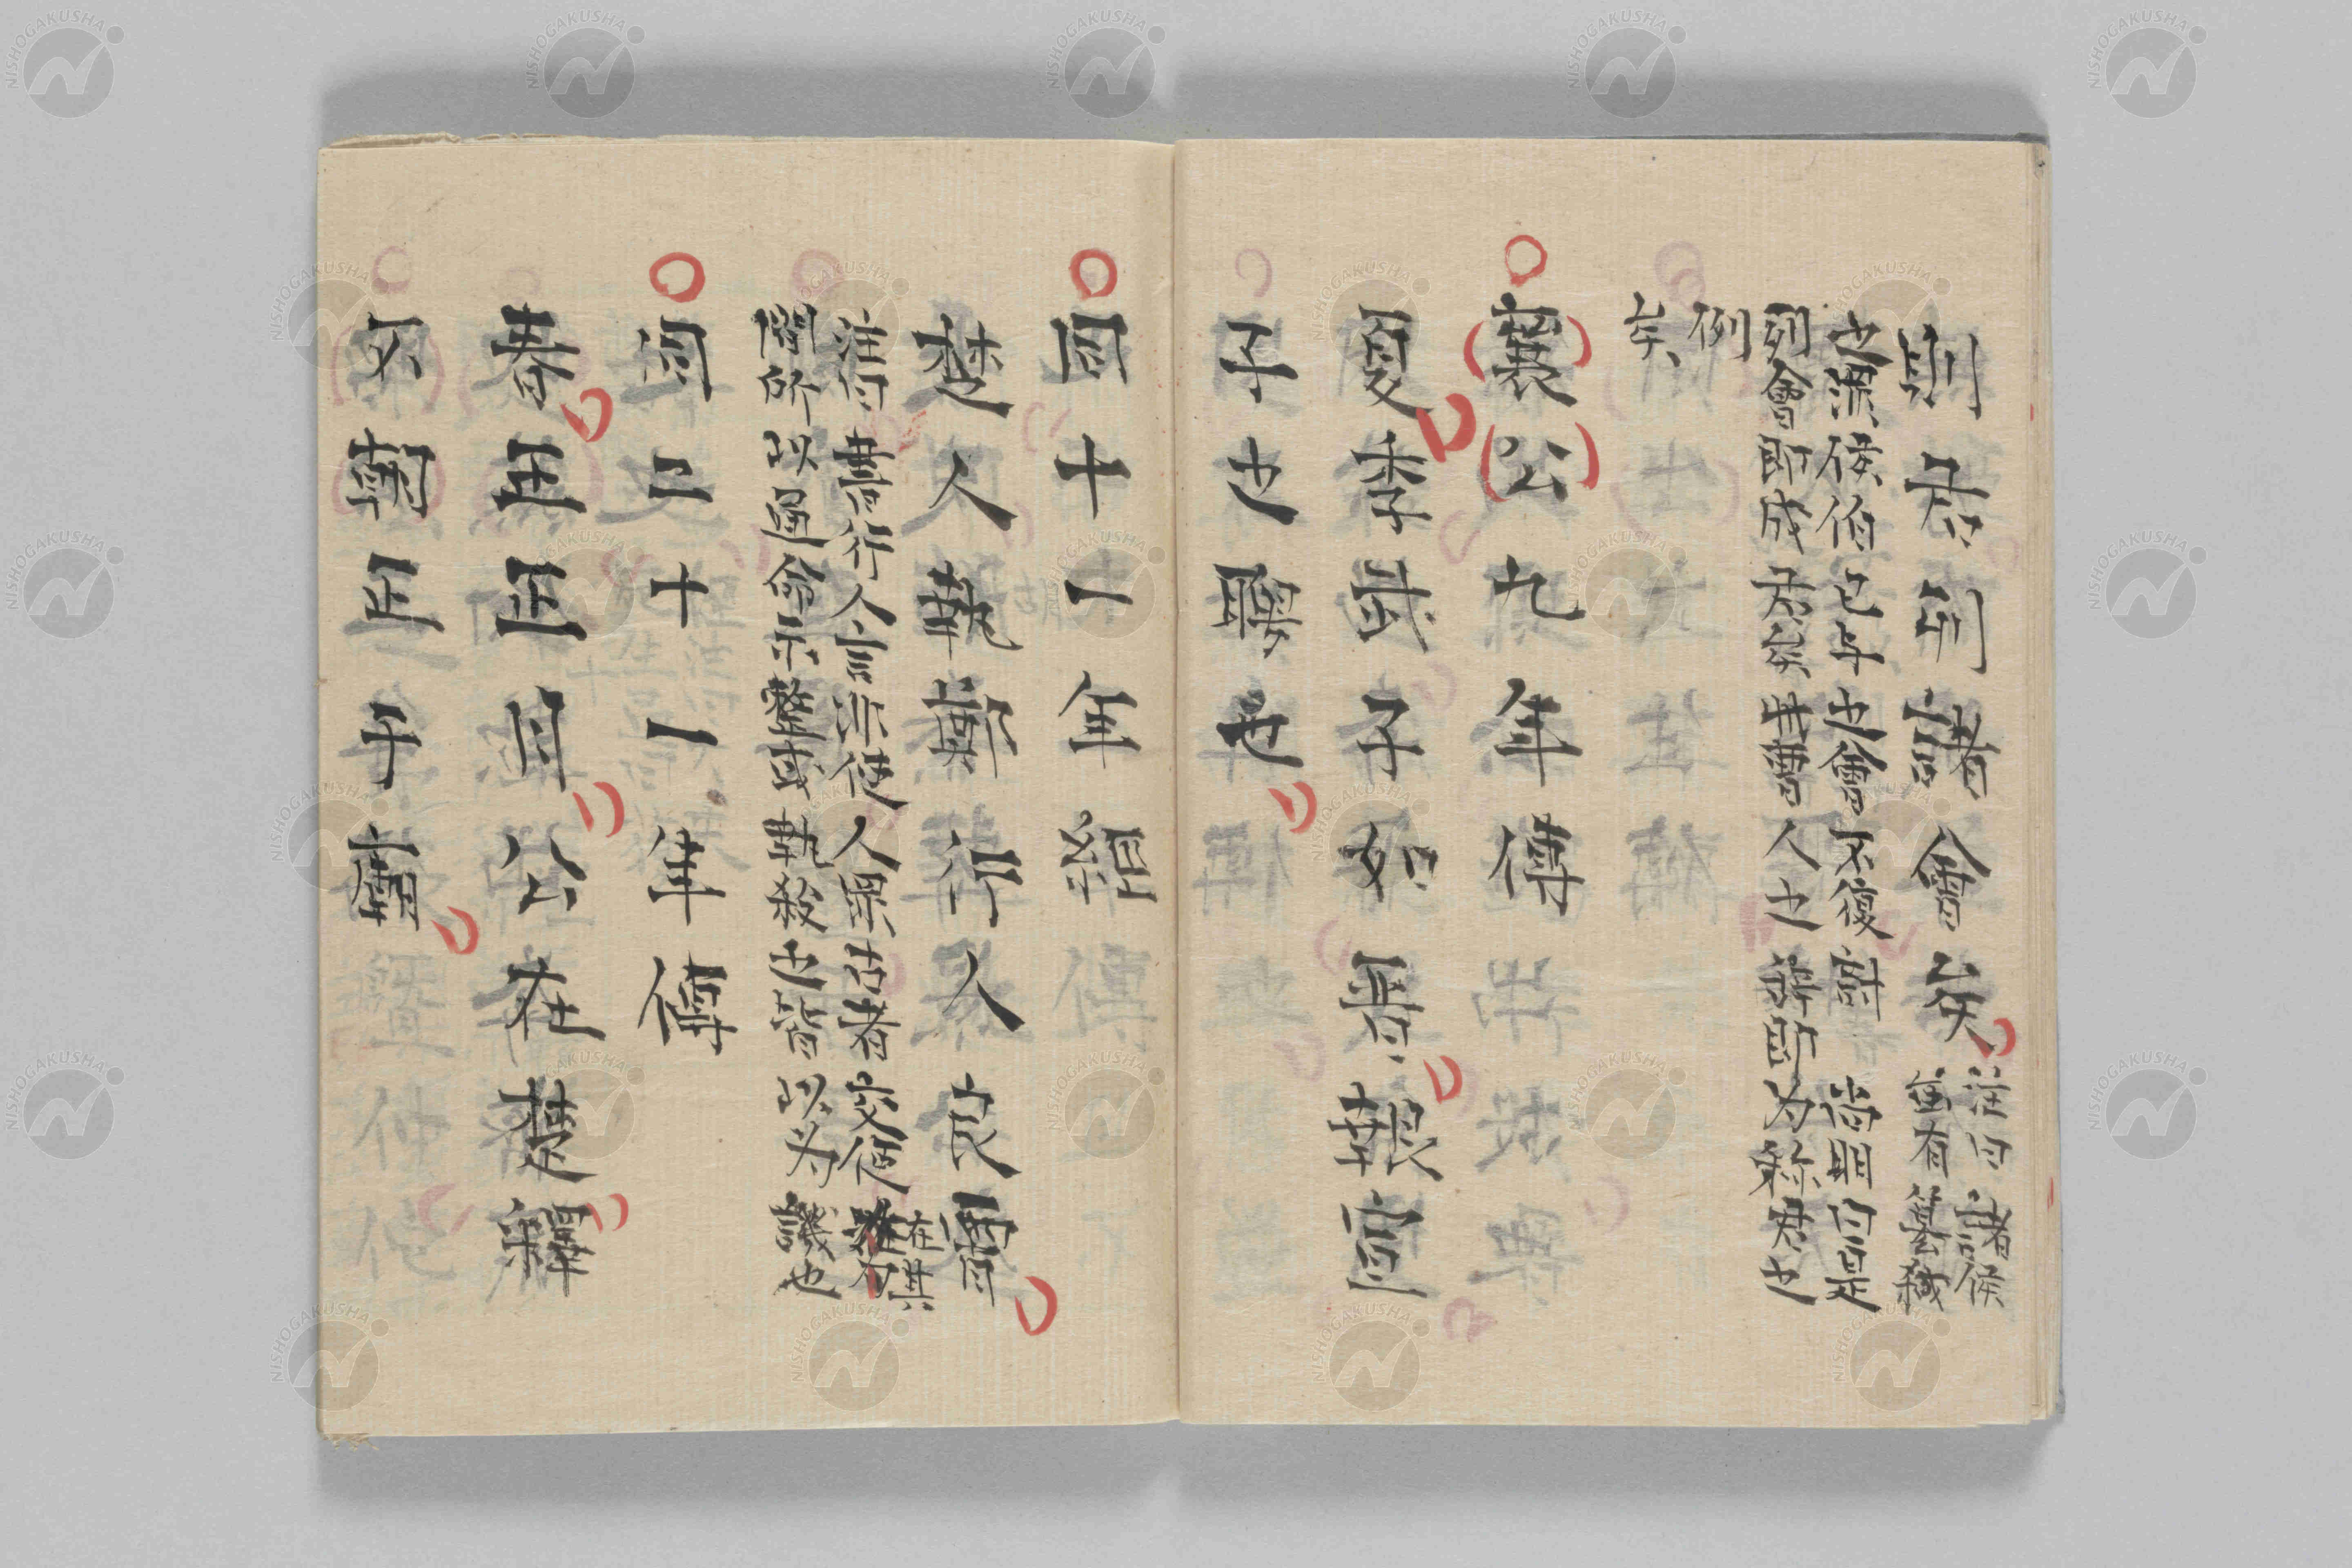 則君列諸會矣
注曰諸侯
雖有簒弑
之罪侯伯已与之會不復討 前明曰是
列會即成君矣其曹人之辞即为称君之
例
矣
襄公九年傳
夏季武子如晋報宣
子之聘也
同十一年經
楚人執鄭行人良霄
注曰書行人言非使人罪古者兵交使在其
間所以通命示整或執殺之皆以为譏也
同二十一年傳
春王正月公在楚釋
不朝正于廟
NISHOGAKUSHA